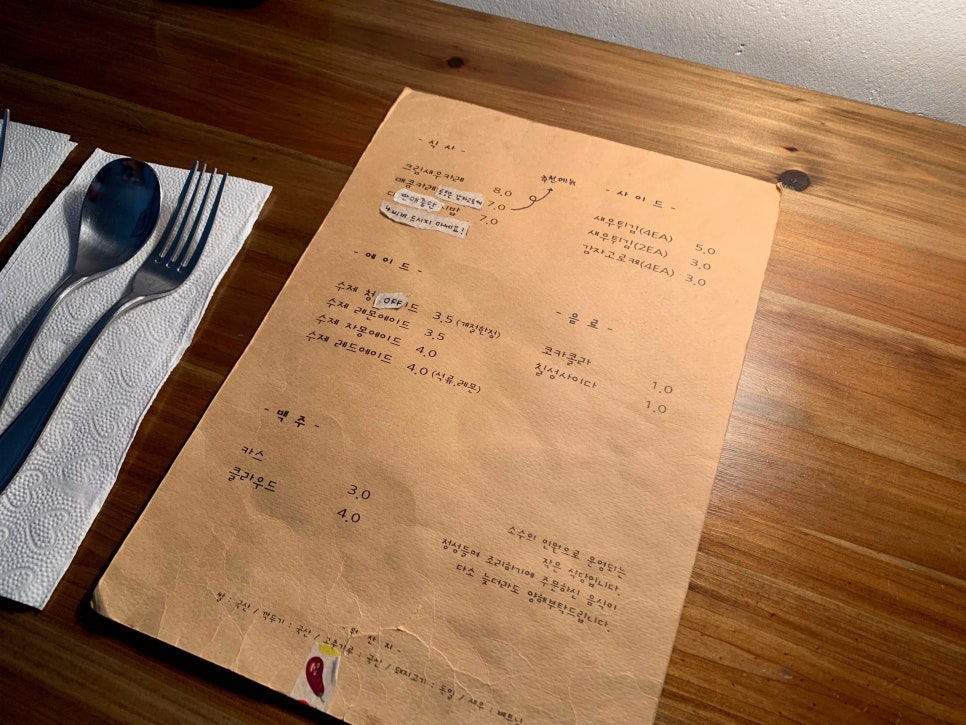 - 식 사 -
크림새우카레 8.0
매콤카레 7.0
추천메뉴
판매중단 비밥 7.0
누르게 드시지 마세요!
- 사 이 드 -
새우튀김(4EA) 5.0
새우튀김(2EA) 3.0
감자고로케(4EA) 3.0
- 에 이 드 -
수제 청 OFF 이드 3.5 (계절한정)
수제 레몬에이드 3.5
수제 자몽에이드 4.0
수제 레드에이드 4.0 (석류,레몬)
- 음 료 -
코카콜라 1.0
칠성사이다 1.0
- 맥 주 -
카스 3.0
클라우드 4.0
소수의 인원으로 운영되는
작은 식당입니다.
정성들여 조리하기에 주문하신 음식이
다소 늦더라도 양해부탁드립니다.
- 원 산 지 -
쌀 : 국산 / 깍두기 : 국산 / 고추가루 : 국산 / 돼지고기 : 독일 / 새우 : 베트남